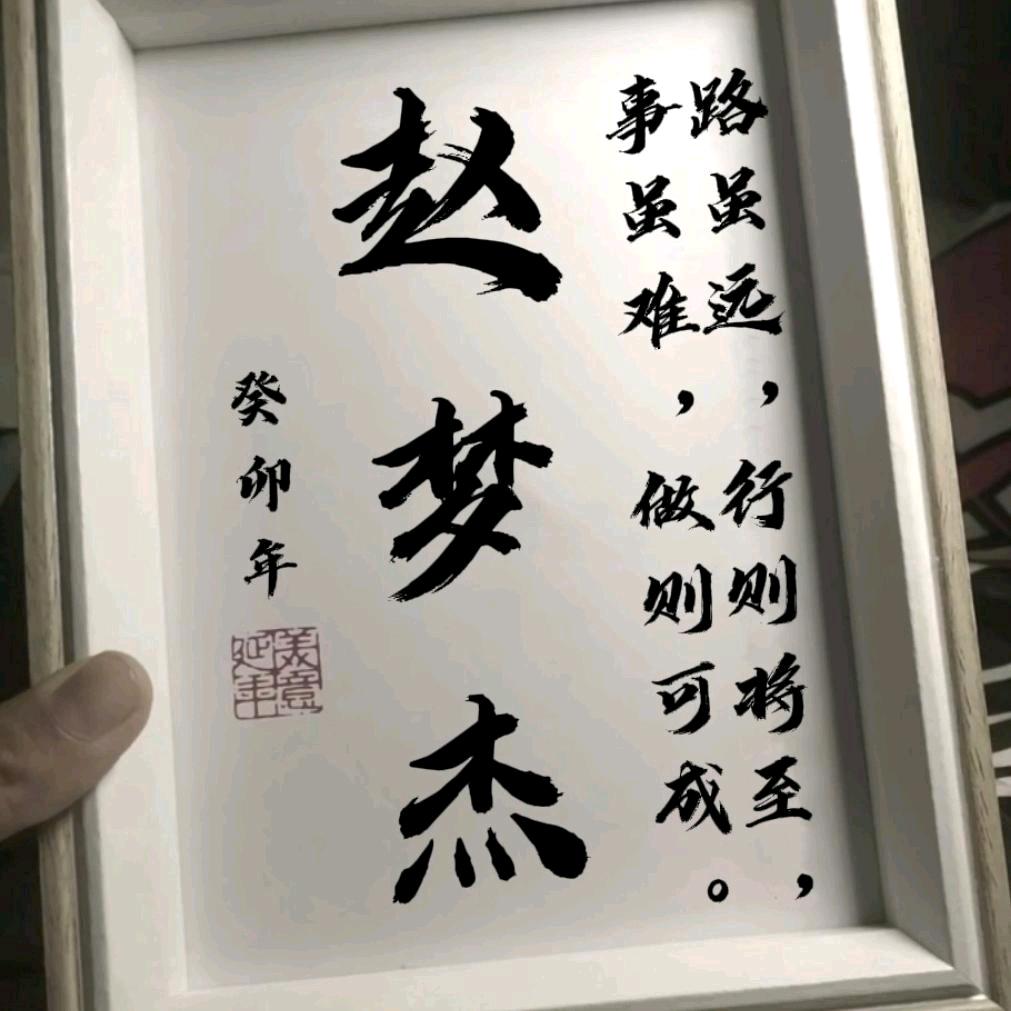 路虽远，行则将至，
事虽难，做则可成。
赵梦杰
癸卯年
美意
延年